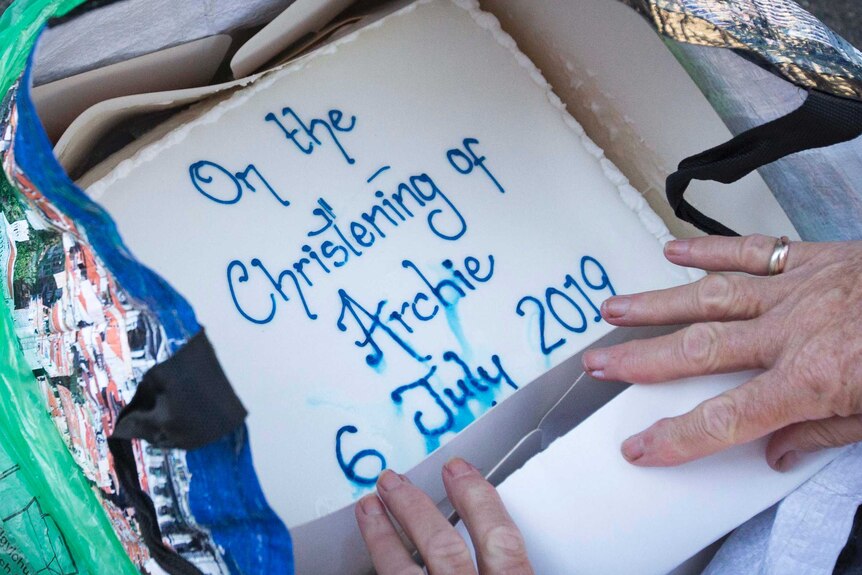 On the
Christening of
Archie
6 July 2019